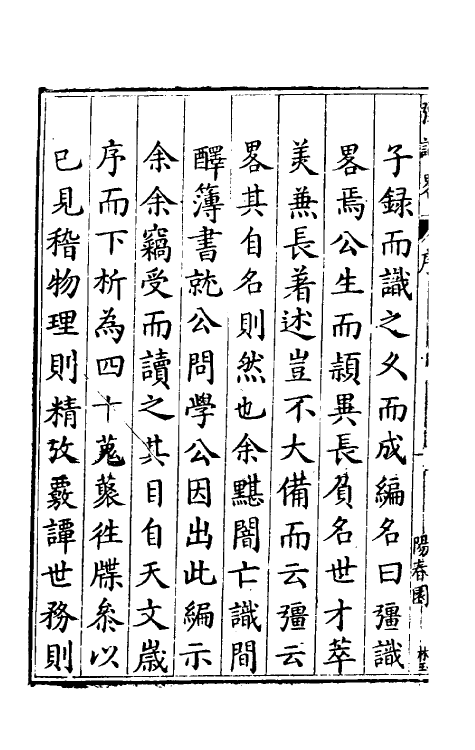 子録而識之久而成編名曰彊識
畧焉公生而頴異長負名世才萃
美兼長著述豈不大備而云彊云
畧其自名則然也余黮闇亡識間
醳簿書就公問學公因出此編示
余余竊受而讀之其目自天文嵗
序而下析為四十蒐蓑徃牒叅以
已見稽物理則精攷覈譚世務則
陽春園